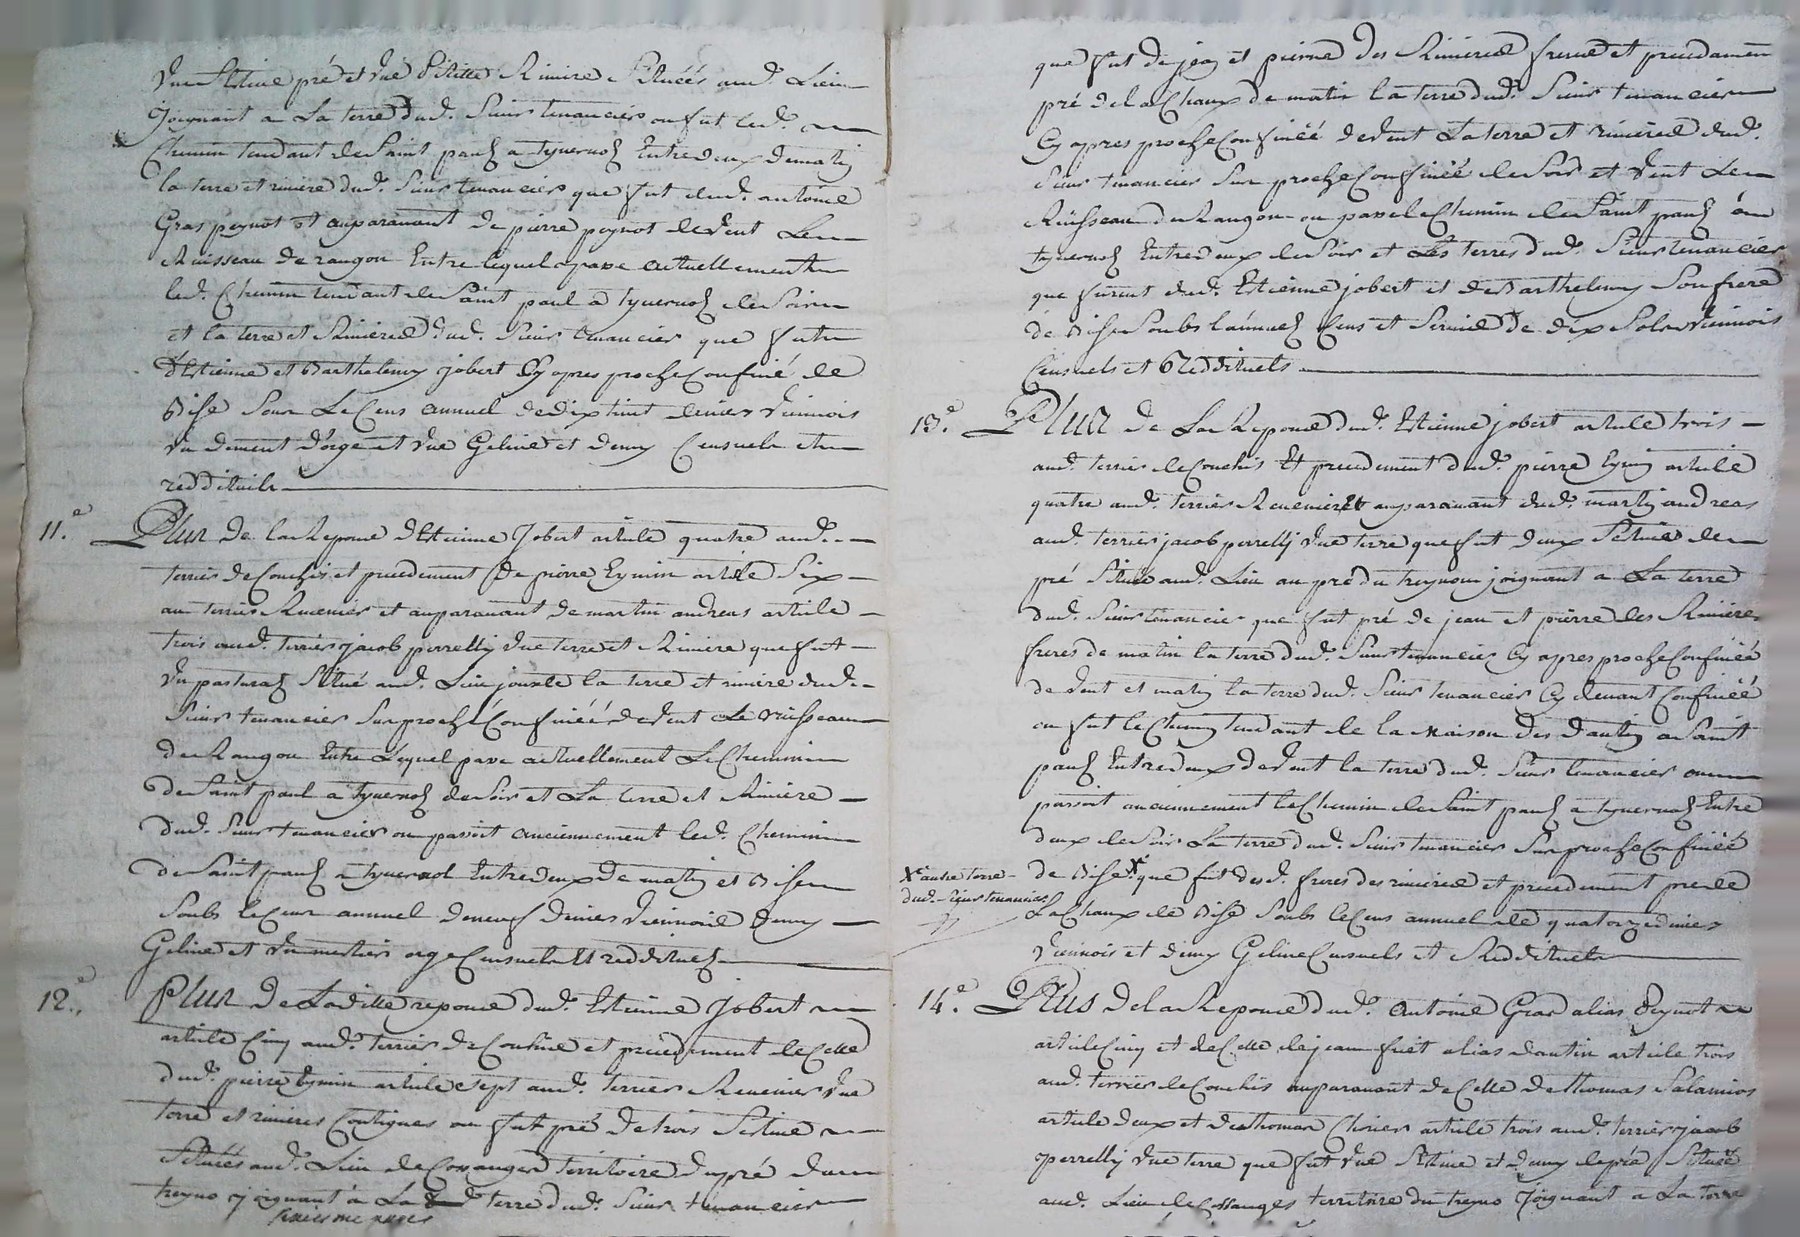 une sestive pré et une petitte Riviere situéés aud. Lieu
joignant a La terre dud. Sieur tenancier ou fut led.
Chemin tendant de Saint paul a tyvernol Entredeux de matin
la terre et riviere dud. Sieur tenancier que fut dud. antoine
Gras peynot et auparavant de pierre peynot de vent Le
Ruisseau de rangou Entre lequel passe actuellement
led. Chemin tendant de Saint paul a tyvernol de Soir
et la terre et Riviere dud. Sieur tenancier que fut
d'Estienne et Barthelemy jobert Cy apres proche Confiné de
Bise Sous Le Cens annuel de dix huit deniers viennois
un demy d'orge et une Geline et demy Censuels et
reddituels
11.e Plus de la Reponce d'Etienne Jobert article quatre aud.
terrier de Couchis et precedement de pierre Eymin article Six
au terrier Revenier et auparavant de martin andreas article
trois aud. terrier jacob perrelly une terre et Riviere que fut
un pasturah Situé aud. Lieu jouxte la terre et riviere dud.
Sieur tenancier Sus proché Confinéé de vent Le ruisseau
de Rangou Entre Lequel passe actuellement Le Chemin
de Saint paul a tyvernol de Soir et La terre et Riviere
dud. Sieur tenancier ou passoit anciennement led. Chemin
de Saint paul a tyvernol Entredeux de matin et Bise
Soubs le Cens annuel de neuf deniers viennois demy
Geline et un mestier orge Censuels Et reddituels
12.e Plus De Laditte reponce dud. Etienne Jobert
article Cinq aud. terrier de Couchis et precedement de Celle
dud. pierre Eymin article sept aud. terrier Revenier une
terre et rivieres Contigues ou fut pré de trois Sestive
Situéés aud. Lieu de Cossanges territoire du pré du
treyno joignant a La terre dud. Sieur tenancier
que fut de jean et pierre des Rivieres freres et precedament
pré de la Chaux de matin la terre dud. Sieur tenancier
Cy apres proche Confinéé de vent La terre et riviere dud.
Sieur tenancier Sus proche Confinéé de Soir et vent Le
Ruisseau de Rangou ou passe le Chemin de Saint paul a
tyvernol Entredeux de Soir et Les terres dud. Sieur tenancier
que furent dud. Estienne jobert et de Barthelemy Son frere
de Bise Soubs l'annuel Cens et Servis de dix Sols viennois
Censuels et Reddituels
13.e Plus de La Reponce dud. Etienne jobert article trois
aud. terrier de Couchis Et precedement dud. pierre Eymin article
quatre aud. terrier Revenier Et auparavant dud. martin andreas
aud. terrier jacob perrelly une terre que fut deux Sestives de
pré Situé aud. Lieu au pré du treynou joignant a La terre
dud. Sieur tenancier que fut pré de jean et pierre des Riviere
freres de matin la terre dud. Sieur tenancier Cy apres proche Confinéé
de vent et matin la terre dud. Sieur tenancier Cy devant Confinéé
ou fut le Chemin tendant de la Maison des Dantin a Saint
paul Entredeux de vent la terre dud. Sieur tenancier ou
passoit anciennement le Chemin de Saint paul a tyvernol Entre
deux de Soir La terre dud. Sieur tenancier Sus proche Confinéé
de Bise X que fut desd. freres des rivieres et precedement pre de
X autre terre
dud. Sieur tenancier
La Chaux de Bise Soubs le Cens annuel de quatorze deniers
viennois et demy Geline Censuels et Reddituels
14.e Plus de la Reponce dud. Antoine Gras alias Peynot
article Cinq et de Celle de jean fuet alias dantin article trois
aud. terrier de Couchis auparavant de Celle de thomas Salamios
article deux et de thomas Chivier article trois aud. terrier jacob
perrelly une terre que fut une Sestive et demy de pré Situéé
aud. Lieu de Cossanges territoire du treyno Joignant a La terre